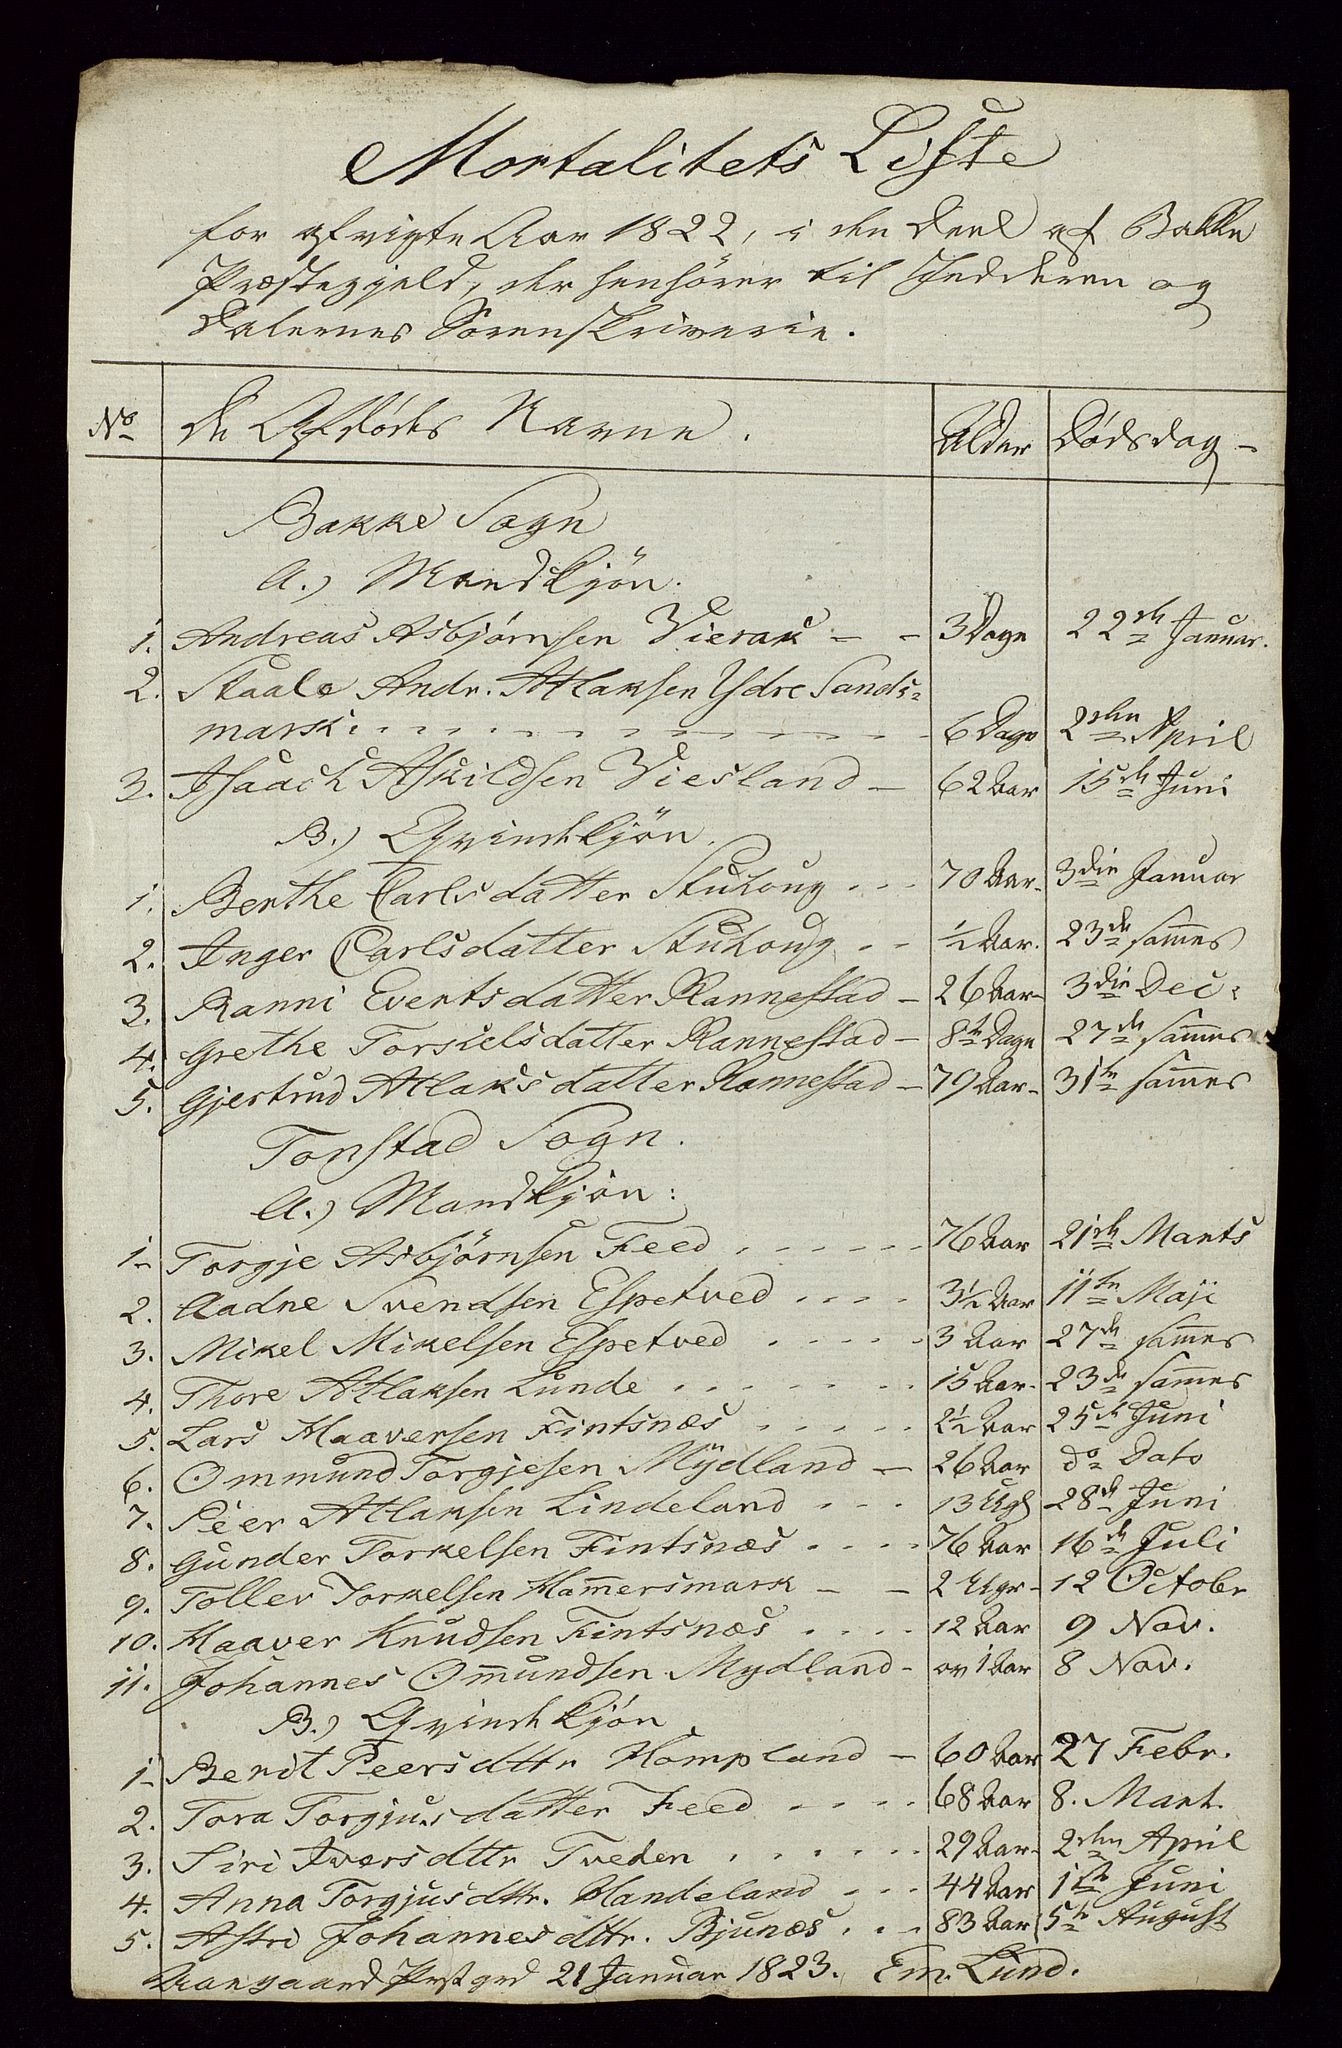 Mortalitets Liste
for afvigte Aar 1822, i den Deel af Bakke
Præstegjeld, der henhörer til Jedderen og
Dalernes Sorenskriverie.
No De Afdødes Navne. Alder Dødsdag
Bakke Sogn
A.) Mandkjön.
1. Andreas Asbjørnsen Vierak 3 Dage 22de Januar.
2. Staale Andr. Atlaksen Ydre Sands-
mark 6 Dage 2den April
3. Isaach Askildsen Viesland 62 Aar 15de Juni
B.) Qvindekjön.
1. Berthe Carlsdatter Stuhoug 70 Aar 3die Januar
2. Inger Carlsdatter Stuhoug 1/2 Aar. 23de sammes
3. Ranni Evertsdatter Rannestad 26 Aar 3die Dec:
4. Grethe Torkielsdatter Rannestad 8te Dage 27de sammes
5. Gjertrud Atlaksdatter Rannestad 79 Aar 31te sammes
Tonstad Sogn.
A.) Mandkjön:
1. Torgje Asbjørnsen Feed 76 Aar 21de Marts
2. Aadne Svendsen Espetved 3 1/2 Aar 11te Maji
3. Mikel Mikelsen Espetved 3 Aar 27de sammes
4. Thore Atlaksen Lunde 15 Aar 23de sammes
5. Lars Haaversen Fintsnæs 2 1/2 Aar 25de Juni
6. Ommund Torgjesen Mÿdland 26 Aar do Dato
7. Peer Atlaksen Lindeland 13 Ugr 28de Juni
8. Gunder Torkelsen Fintsnæs 76 Aar 16de Juli
9. Toller Torkelsen Hammersmark 2 Ugr 12 Octobr
10. Haaver Knudsen Fintsnæs 12 Aar 9 Nov.
11. Johannes Ommundsen Mydland ov 1 Aar 8 Nov.
B.) Qvindekjön
1. Berit Peersdttr Hompland 60 Aar 27 Febr.
2. Tora Torgjusdatter Feed 68 Aar 8. Mart.
3. Siri Iversdttr Tveden 29 Aar 2den April
4. Anna Torgjusdttr. Handeland 44 Aar 1te Juni
5. Astri Johannesdttr. Bjunæs 83 Aar 5te August
Præstgrd 21 Januar 1823. Em. Lund.